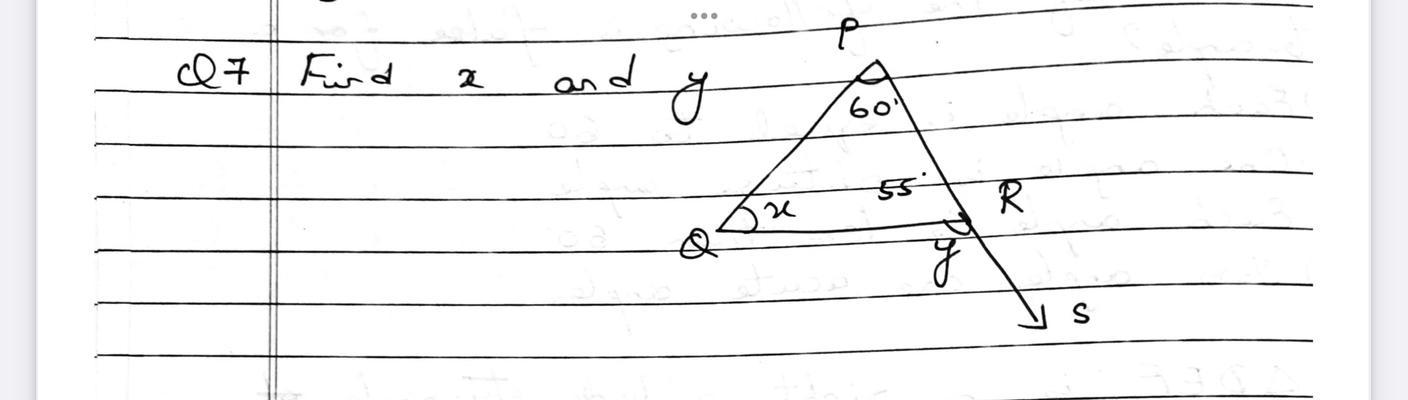 Q7 Find x and y
P
60°
55°
R
x
Q
y
S